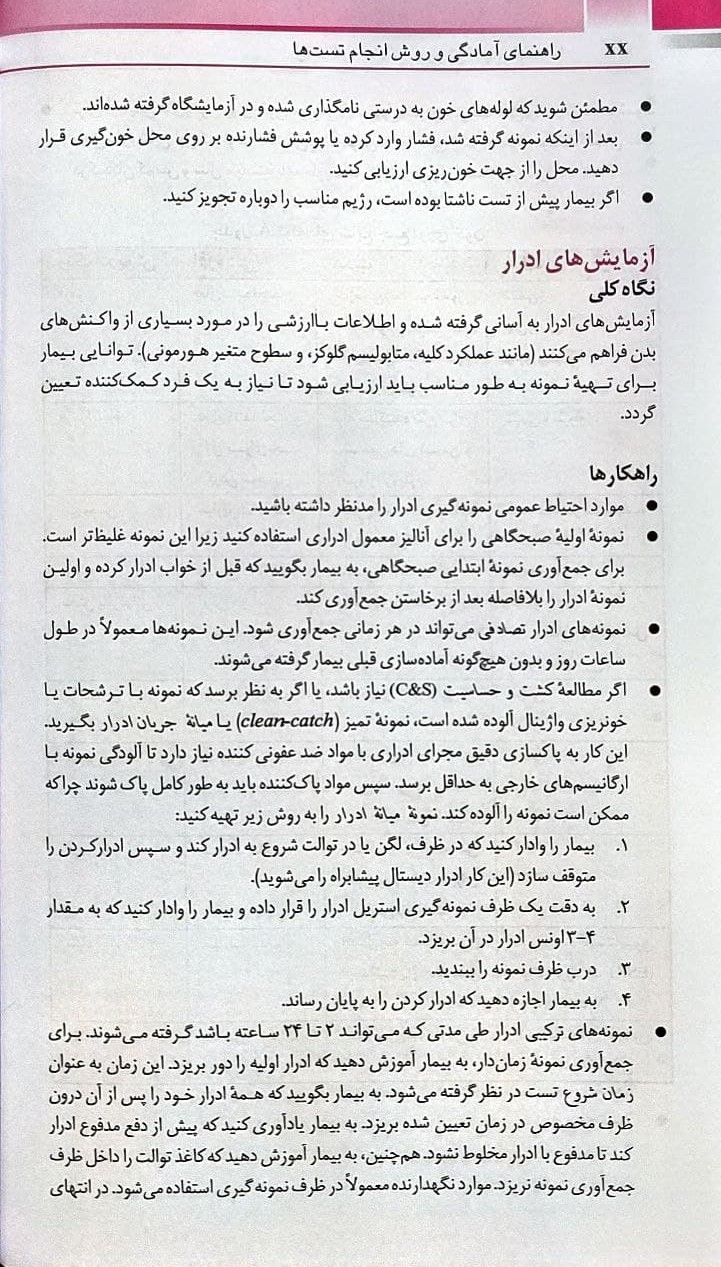 XX راهنمای آمادگی و روش انجام تست‌ها
● مطمئن شوید که لوله‌های خون به درستی نامگذاری شده و در آزمایشگاه گرفته شده‌اند.
● بعد از اینکه نمونه گرفته شد، فشار وارد کرده یا پوشش فشارنده بر روی محل خون‌گیری قرار
دهید. محل را از جهت خون‌ریزی ارزیابی کنید.
● اگر بیمار پیش از تست ناشتا بوده است، رژیم مناسب را دوباره تجویز کنید.
آزمایش‌های ادرار
نگاه کلی
آزمایش‌های ادرار به آسانی گرفته شده و اطلاعات باارزشی را در مورد بسیاری از واکنش‌های
بدن فراهم می‌کنند (مانند عملکرد کلیه، متابولیسم گلوکز، و سطوح متغیر هورمونی). توانایی بیمار
برای تهیهٔ نمونه به طور مناسب باید ارزیابی شود تا نیاز به یک فرد کمک‌کننده تعیین
گردد.
راهکارها
● موارد احتیاط عمومی نمونه‌گیری ادرار را مدنظر داشته باشید.
● نمونهٔ اولیهٔ صبحگاهی را برای آنالیز معمول ادراری استفاده کنید زیرا این نمونه غلیظ‌تر است.
برای جمع‌آوری نمونهٔ ابتدایی صبحگاهی، به بیمار بگویید که قبل از خواب ادرار کرده و اولین
نمونهٔ ادرار را بلافاصله بعد از برخاستن جمع‌آوری کند.
● نمونه‌های ادرار تصادفی می‌تواند در هر زمانی جمع‌آوری شود. این نمونه‌ها معمولاً در طول
ساعات روز و بدون هیچ‌گونه آماده‌سازی قبلی بیمار گرفته می‌شوند.
● اگر مطالعهٔ کشت و حساسیت (C&S) نیاز باشد، یا اگر به نظر برسد که نمونه با ترشحات یا
خونریزی واژینال آلوده شده است، نمونهٔ تمیز (clean-catch) یا میانهٔ جریان ادرار بگیرید.
این کار به پاکسازی دقیق مجرای ادراری با مواد ضد عفونی کننده نیاز دارد تا آلودگی نمونه با
ارگانیسم‌های خارجی به حداقل برسد. سپس مواد پاک‌کننده باید به طور کامل پاک شوند چراکه
ممکن است نمونه را آلوده کند. نمونهٔ میانهٔ ادرار را به روش زیر تهیه کنید:
۱. بیمار را وادار کنید که در ظرف، لگن یا در توالت شروع به ادرار کند و سپس ادرارکردن را
متوقف سازد (این کار ادرار دیستال پیشابراه را می‌شوید).
۲. به دقت یک ظرف نمونه‌گیری استریل ادرار را قرار داده و بیمار را وادار کنید که به مقدار
۳-۴ اونس ادرار در آن بریزد.
۳. درب ظرف نمونه را ببندید.
۴. به بیمار اجازه دهید که ادرار کردن را به پایان رساند.
● نمونه‌های ترکیبی ادرار طی مدتی که می‌تواند ۲ تا ۲۴ ساعته باشد گرفته می‌شوند. برای
جمع‌آوری نمونهٔ زمان‌دار، به بیمار آموزش دهید که ادرار اولیه را دور بریزد. این زمان به عنوان
زمان شروع تست در نظر گرفته می‌شود. به بیمار بگویید که همهٔ ادرار خود را پس از آن درون
ظرف مخصوص در زمان تعیین شده بریزد. به بیمار یادآوری کنید که پیش از دفع مدفوع ادرار
کند تا مدفوع با ادرار مخلوط نشود. هم‌چنین، به بیمار آموزش دهید که کاغذ توالت را داخل ظرف
جمع‌آوری نمونه نریزد. موارد نگهدارنده معمولاً در ظرف نمونه‌گیری استفاده می‌شود. در انتهای